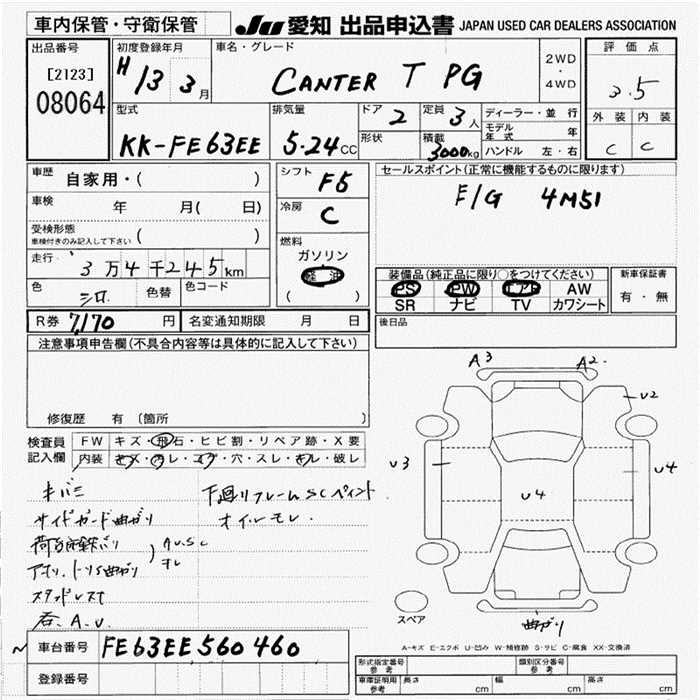 車内保管・守衛保管
JU 愛知 出品申込書 JAPAN USED CAR DEALERS ASSOCIATION
出品番号
[2123]
08064
初度登録年月
H 13 3月
車名・グレード
CANTER T PG
2WD
・
4WD
評価点
3.5
外装 内装
C C
型式
KK-FE63EE
排気量
5.24CC
ドア 2
形状
定員 3人
積載 3000kg
ディーラー・並行
モデル年式 年
ハンドル 左・右
車歴 自家用・( )
車検 年 月( 日)
受検形態
車検付きのみ記入して下さい ( )
走行 3万4千245km
色 シロ 色替 色コード
シフト F5
冷房 C
燃料
ガソリン
軽油
( )
セールスポイント(正常に機能するものに限ります)
E/G 4M51
装備品(純正品に限り○をつけてください)
PS PW エアB AW
SR ナビ TV カワシート
新車保証書
有・無
R券 7,170 円 名変通知期限 月 日
後日品
注意事項申告欄(不具合内容等は具体的に記入して下さい)
修復歴 有 (箇所 )
検査員
記入欄
FW キズ・飛石・ヒビ割・リペア跡・X要
内装 ヨゴレ・コゲ・穴・スレ・キレ・破レ
キバミ
サイドガード曲がり
スタッドレス
A.U.
A.U.S.C
下廻りフレームSCペイント
オイルモレ.
A3 A2.
U2
U3 U4 U4
スペア
曲がり
A-キズ E-エクボ U-凹み W-補修跡 S-サビ C-腐食 XX-交換済
車台番号 FE63EE560460
登録番号
形式指定番号
参考
類別区分番号
参考
車庫証明用
参考
長さ cm 幅 cm 高さ cm